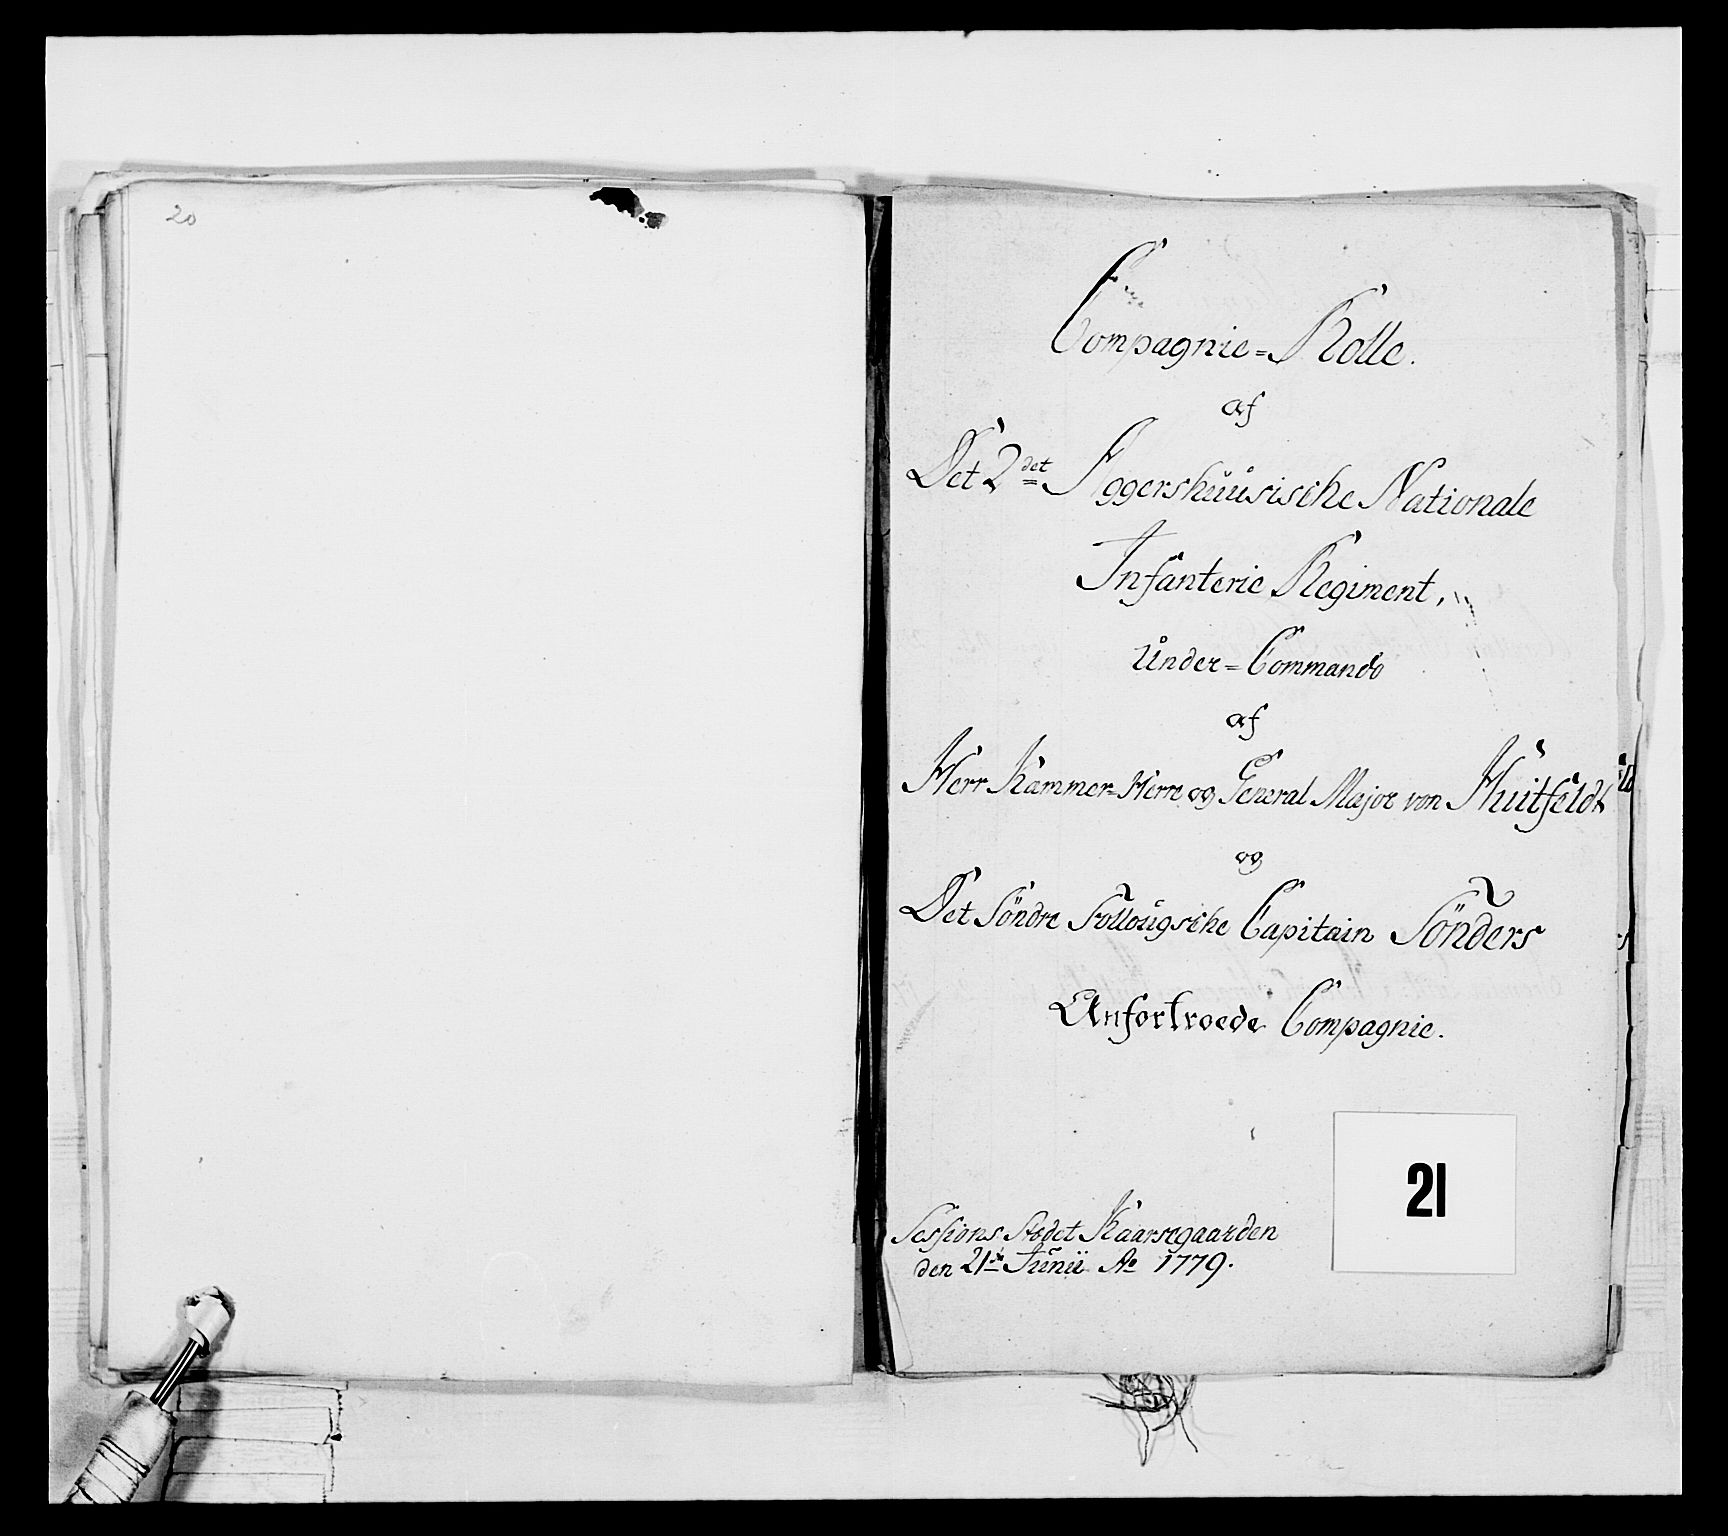 20
Compagnie=Rolle.
af
Det 2det Aggershuusische Nationale
Infanterie Regiment,
Under=Commando
af
Herr Kammer=Herre og General Major von Huitfeldt
og
Det Söndre Follougsche Capitain Sönders
Anfortroede Compagnie.
21
Sessions Stædet Kaarsegaarden
den 21de Junii Ao 1779.